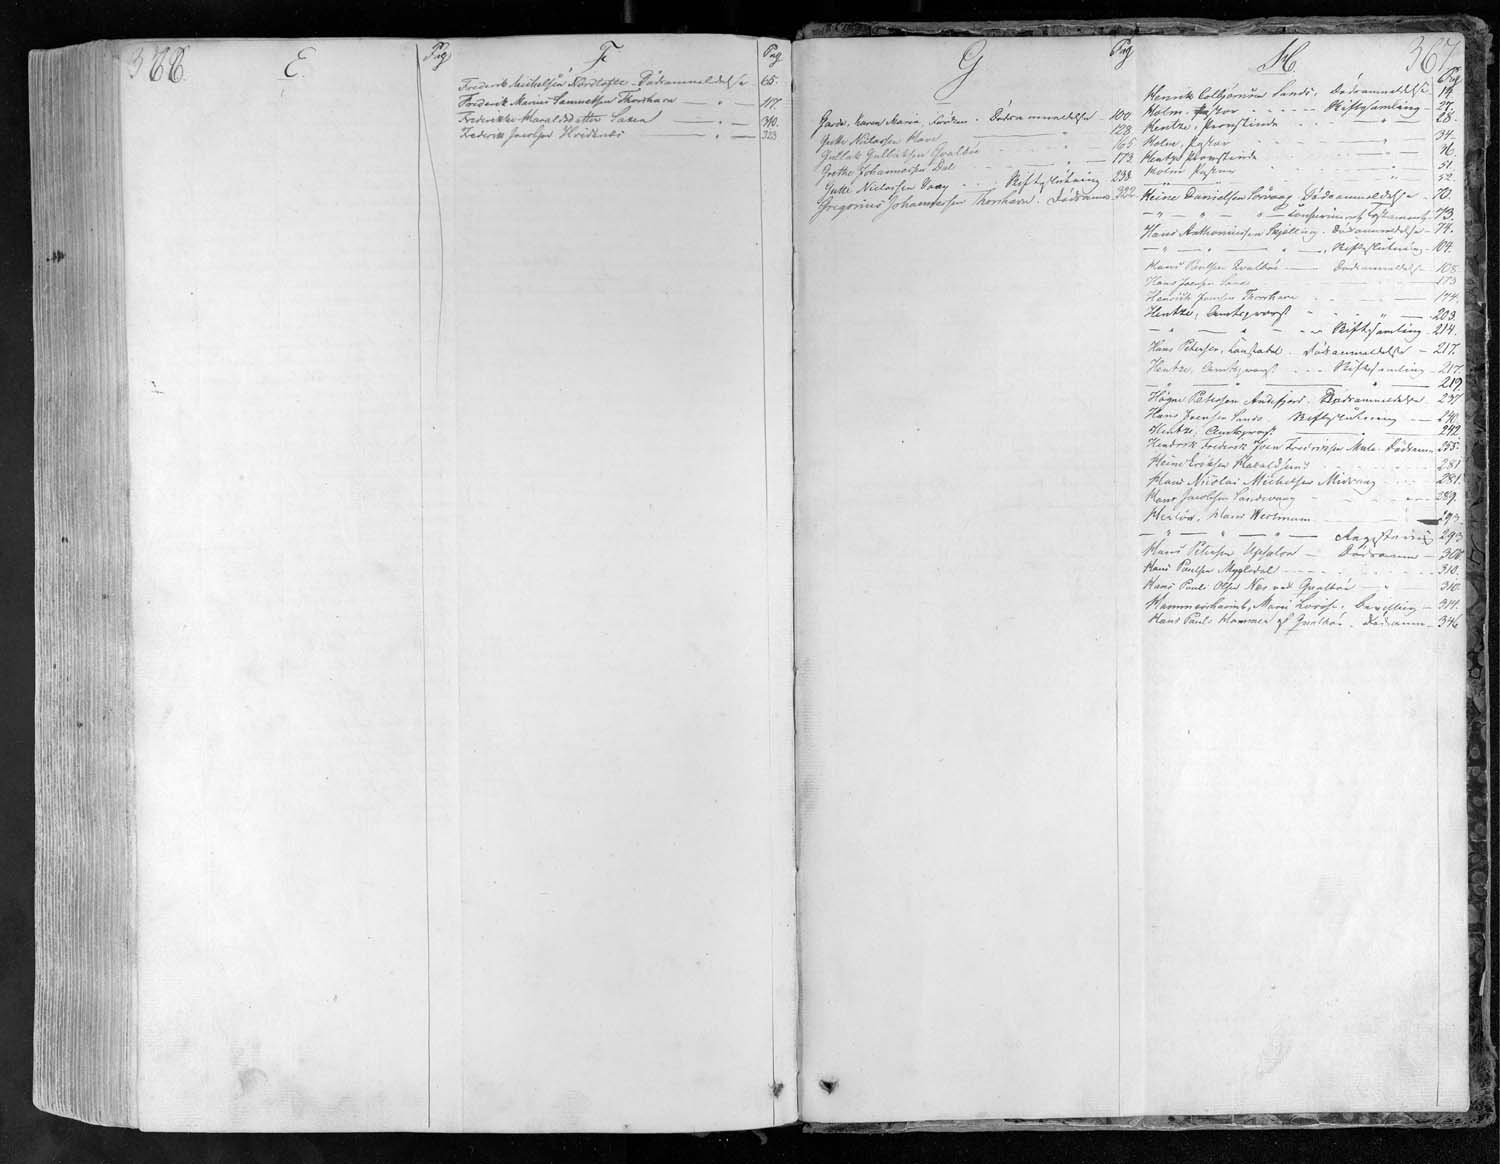 366
E.
Pag
F.
Pag
Frederik Michelsen Nordtofte. Dødsanmeldelse 65.
Frederik Marius Samuelsen Thorshavn — " — 117.
Frederikke Haraldsdatter — " — 310.
Frederik Jacobsen — " — 323
G
Pag
Garde, Karen Maria . Dødsanmeldelse - 100.
Gutte Niclassen - 128.
Gullak Gullaksen Qvalböe - 165.
Grethe Johannesen Dal - " - 173.
Gutte Niclassen Vaag - - Skifteslutning - 238.
Gregorius Johannesen Thorshavn. Dødsanm - 322.
H
367.
Pag
Henrik Sands, Dødsanmeldelse 14.
Holm, Pastor - - - - Skiftesamling - 27.
Hentze, Provstinde - - " - 28.
Holm, Pastor - - " - 34.
Hentze Provstinde - 36.
Holm Pastor - 51.
" - 52.
Heine Danielsen Sörvaag Dødsanmeldelse - 70.
— " — " — " — Testament - 73.
Hans Anthoniussen Skjelling. Dødsanmeldelse - 74.
— " — " — " Skifteslutning - 104.
Hans Poulsen Qvalböe — Dødsanmeldelse 108.
Hans Joensen Sand - 173
Henrik Joensen Thorshavn - 174.
Hentze, Amtsprovst - - " - 203.
— " — " — " Skiftesamling - 214.
Hans Petersen, Constabel. Dødsanmeldelse - 217.
Hentze, Amtsprovst - - - Skiftesamling - 217.
— " — " — " — 219.
Högne Petersen Andefjord. Dødsanmeldelse 237
Hans Joensen Sands. Skifteslutning - 240.
Hentze, Amtsprovst — " — 242
Hendrik Frederik Joen Fredriksen Mule. Dødsanm 255.
Heine Eriksen Haraldsund - 281
Hans Nicolai Michelsen Midvaag - 281.
Hans Jacobsen Sandevaag - 289.
Hans Westmann - 293
— " — " — " — 293
Hans Petersen — Dødsanm — 300
Hans Poulsen Mygledal - 310.
Hans Pauli Olsen Næs ved Qvalböe — " — 310.
Hammershaimb, Marie Lovise. Bevilling - 314.
Hans Pauli Hammer af Qvalböe. Dødsanm - 346